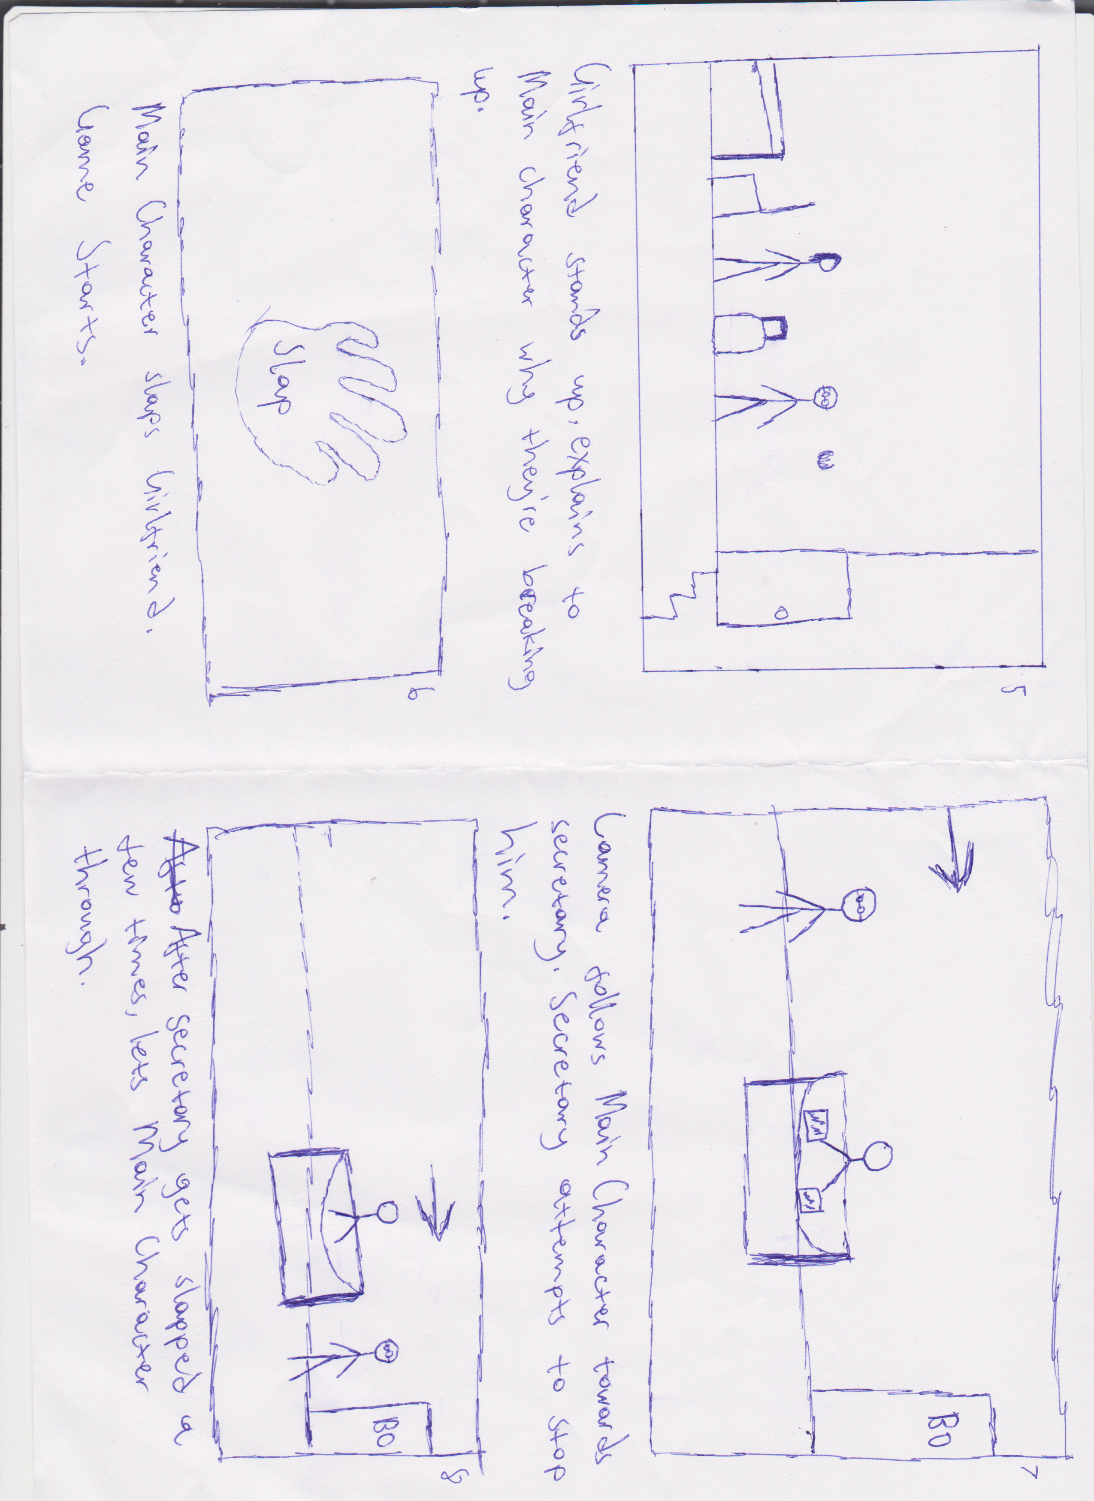 5
Girlfriend stands up, explains to
Main character why they're breaking
up.
6
Slap
Main Character slaps Girlfriend.
Game Starts.
7
BO
Camera follows Main Character towards
secretary. Secretary attempts to stop
him.
8
BO
After secretary gets slapped a
few times, lets Main Character
through.